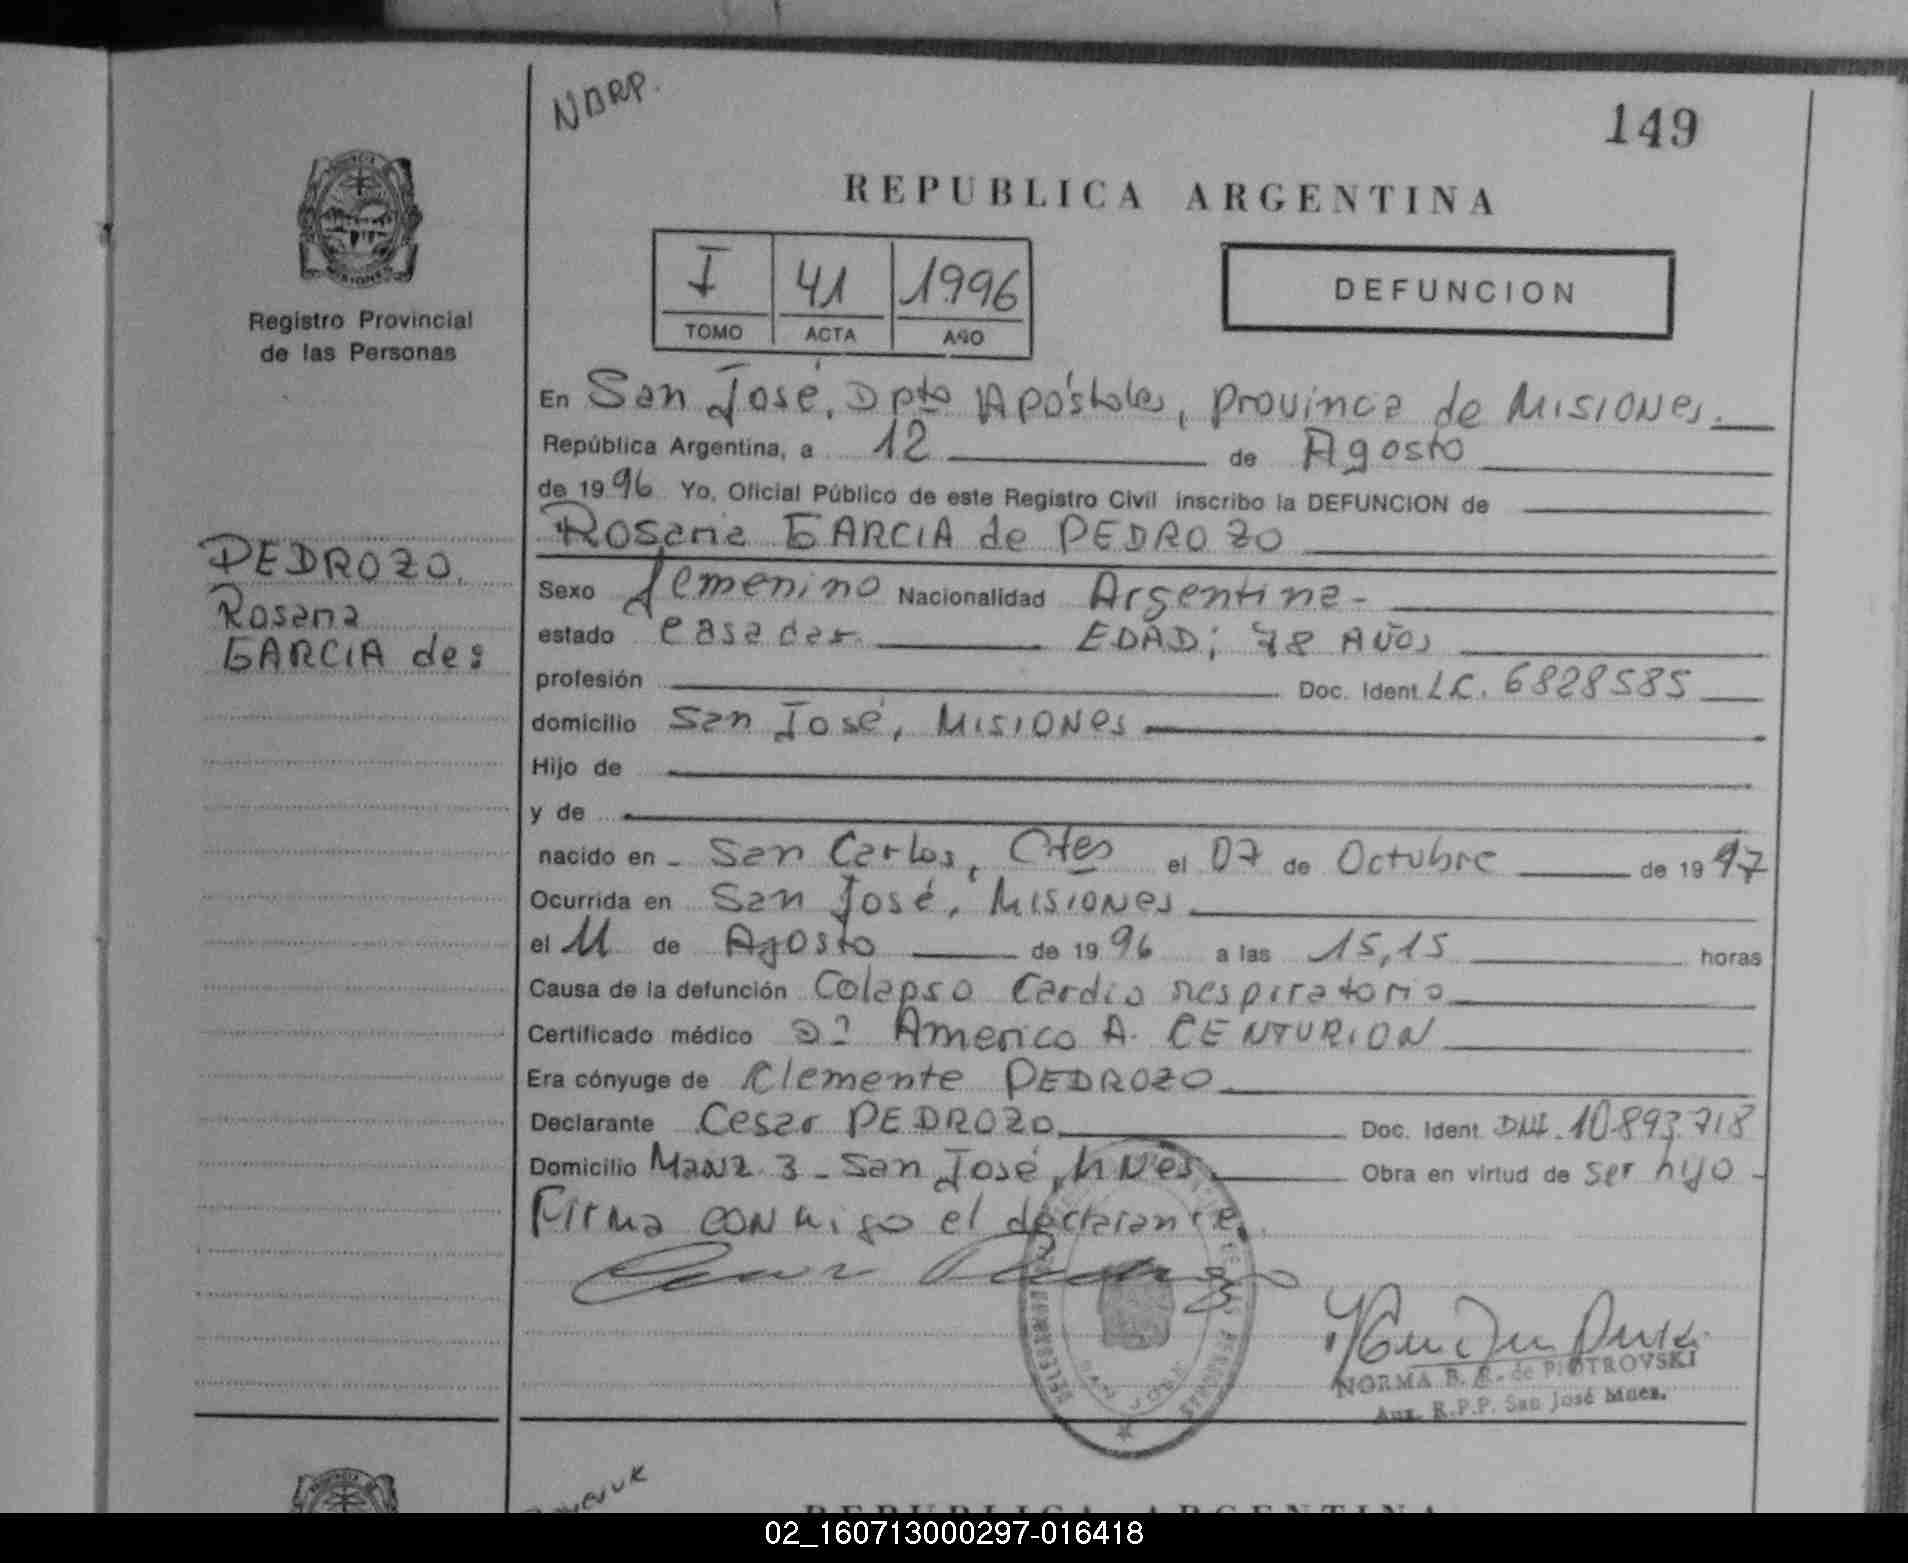 NBRP.
149
REPUBLICA ARGENTINA
I 41 1996
TOMO ACTA AÑO
DEFUNCION
Registro Provincial
de las Personas
PEDROZO,
Rosaria
GARCIA de:
En San José, Dpto Apóstoles, provincia de Misiones.
República Argentina, a 12 de Agosto
de 1996 Yo, Oficial Público de este Registro Civil inscribo la DEFUNCION de
Rosaria GARCIA de PEDROZO
Sexo femenino Nacionalidad Argentina-
estado casada EDAD: 78 AÑOS
profesión Doc. Ident. LC. 6828585
domicilio San José, Misiones
Hijo de
y de
nacido en - San Carlos, Ctes el 07 de Octubre de 1917
Ocurrida en San José, Misiones
el 11 de Agosto de 1996 a las 15,15 horas
Causa de la defunción Colapso Cardio respiratorio
Certificado médico Dr Americo A. CENTURION
Era cónyuge de Clemente PEDROZO
Declarante Cesar PEDROZO Doc. Ident. DNI. 10.893.718
Domicilio Manz 3 - San José, Mnes Obra en virtud de ser hijo -
Firma conmigo el declarante.
NORMA B. R. de PIOTROVSKI
Aux. R.P.P. San José Mnes.
REPUBLICA ARGENTINA
02_160713000297-016418